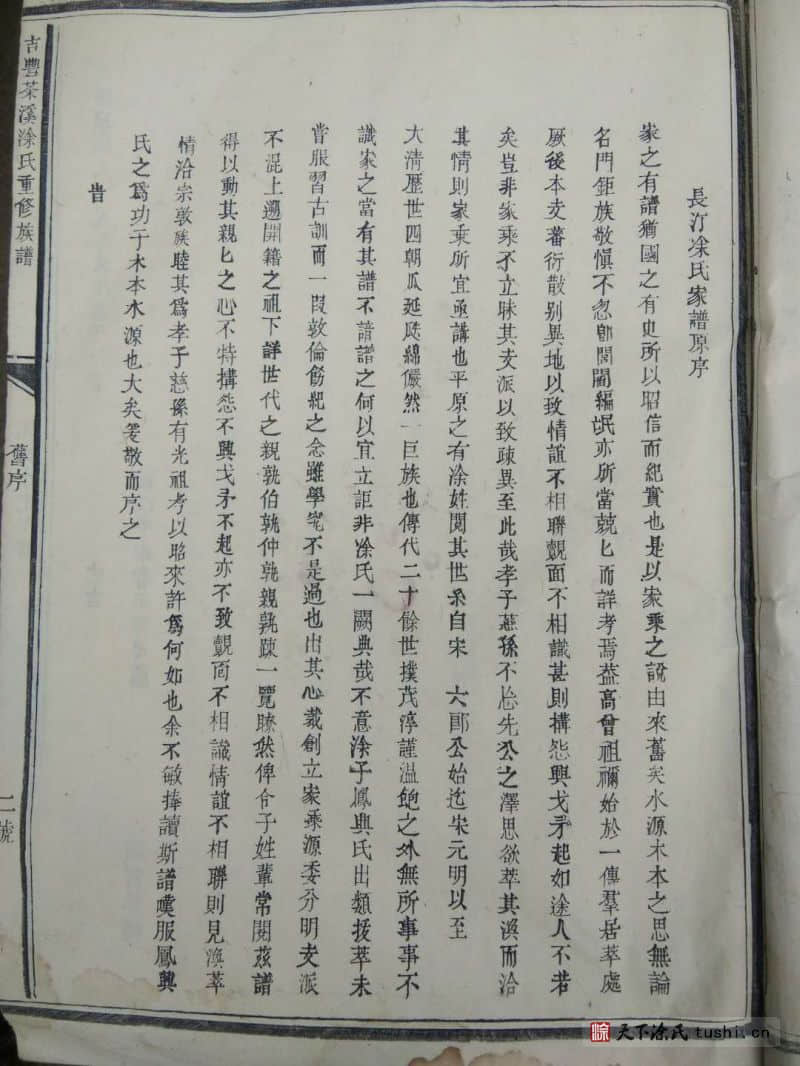 長汀凃氏家譜原序
家之有譜猶國之有史所以昭信而紀實也是以家乘之說由來舊矣水源木本之思無論
名門鉅族敬慎不忽卽閭閻編氓亦所當兢匕而詳考焉葢高曾祖禰始於一傳羣居萃處
厥後本支蕃衍散别異地以致情誼不相聯覿面不相識甚則構怨興戈矛起如途人不若
矣豈非家乘不立昧其支派以致疎異至此哉孝子慈孫不忘先公之澤思欲萃其渙而洽
其情則家乘所宜亟講也平原之有凃姓閱其世系自宋 六郎公始迄宋元明以至
大清歷世四朝瓜瓞綿儼然一巨族也傳代二十餘世撲茂淳謹溫飽之外無所事事不
識家之當有其譜不諳譜之何以宜立詎非凃氏一闕典哉不意凃子鳳興氏出類拔萃未
嘗服習古訓而一段敦倫飭紀之念雖學究不是過也出其心裁創立家乘源委分明支派
不混上遡開籍之祖下詳世代之親孰伯孰仲孰親孰疎一覽瞭然俾合子姓輩常閱茲譜
得以動其親匕之心不特構怨不興戈矛不起亦不致覿面不相識情誼不相聯則見渙萃
情洽宗敦族睦其爲孝子慈孫有光祖考以昭來許爲何如也余不敏捧讀斯譜嘆服鳳興
氏之爲功于木本水源也大矣爰敬而序之
旹
吉豐茶溪涂氏重修族譜
舊序
二號
天下涂氏 tushi.cn